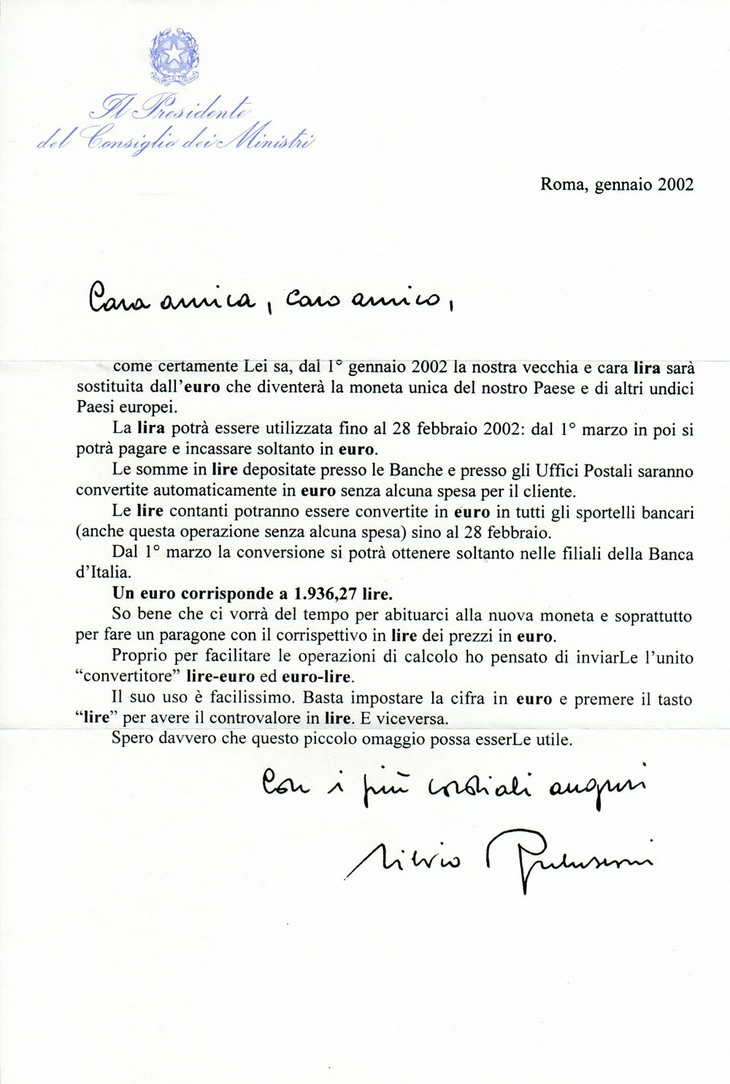 Il Presidente
del Consiglio dei Ministri
Roma, gennaio 2002
Cara amica, caro amico,
come certamente Lei sa, dal 1° gennaio 2002 la nostra vecchia e cara lira sarà
sostituita dall'euro che diventerà la moneta unica del nostro Paese e di altri undici
Paesi europei.
La lira potrà essere utilizzata fino al 28 febbraio 2002: dal 1° marzo in poi si
potrà pagare e incassare soltanto in euro.
Le somme in lire depositate presso le Banche e presso gli Uffici Postali saranno
convertite automaticamente in euro senza alcuna spesa per il cliente.
Le lire contanti potranno essere convertite in euro in tutti gli sportelli bancari
(anche questa operazione senza alcuna spesa) sino al 28 febbraio.
Dal 1° marzo la conversione si potrà ottenere soltanto nelle filiali della Banca
d'Italia.
Un euro corrisponde a 1.936,27 lire.
So bene che ci vorrà del tempo per abituarci alla nuova moneta e soprattutto
per fare un paragone con il corrispettivo in lire dei prezzi in euro.
Proprio per facilitare le operazioni di calcolo ho pensato di inviarLe l'unito
“convertitore” lire-euro ed euro-lire.
Il suo uso è facilissimo. Basta impostare la cifra in euro e premere il tasto
“lire” per avere il controvalore in lire. E viceversa.
Spero davvero che questo piccolo omaggio possa esserLe utile.
Con i più cordiali auguri
Silvio Berlusconi